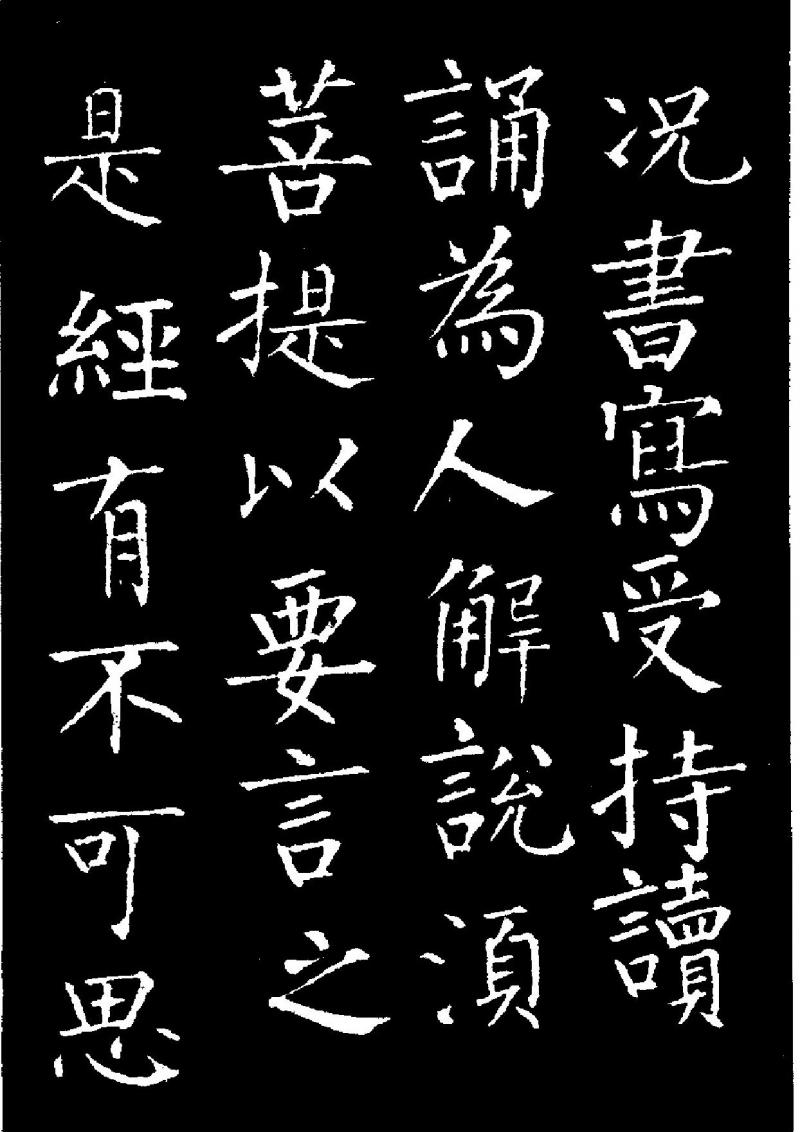 况書寫受持讀
誦為人解說湏
菩提以要言之
是經有不可思